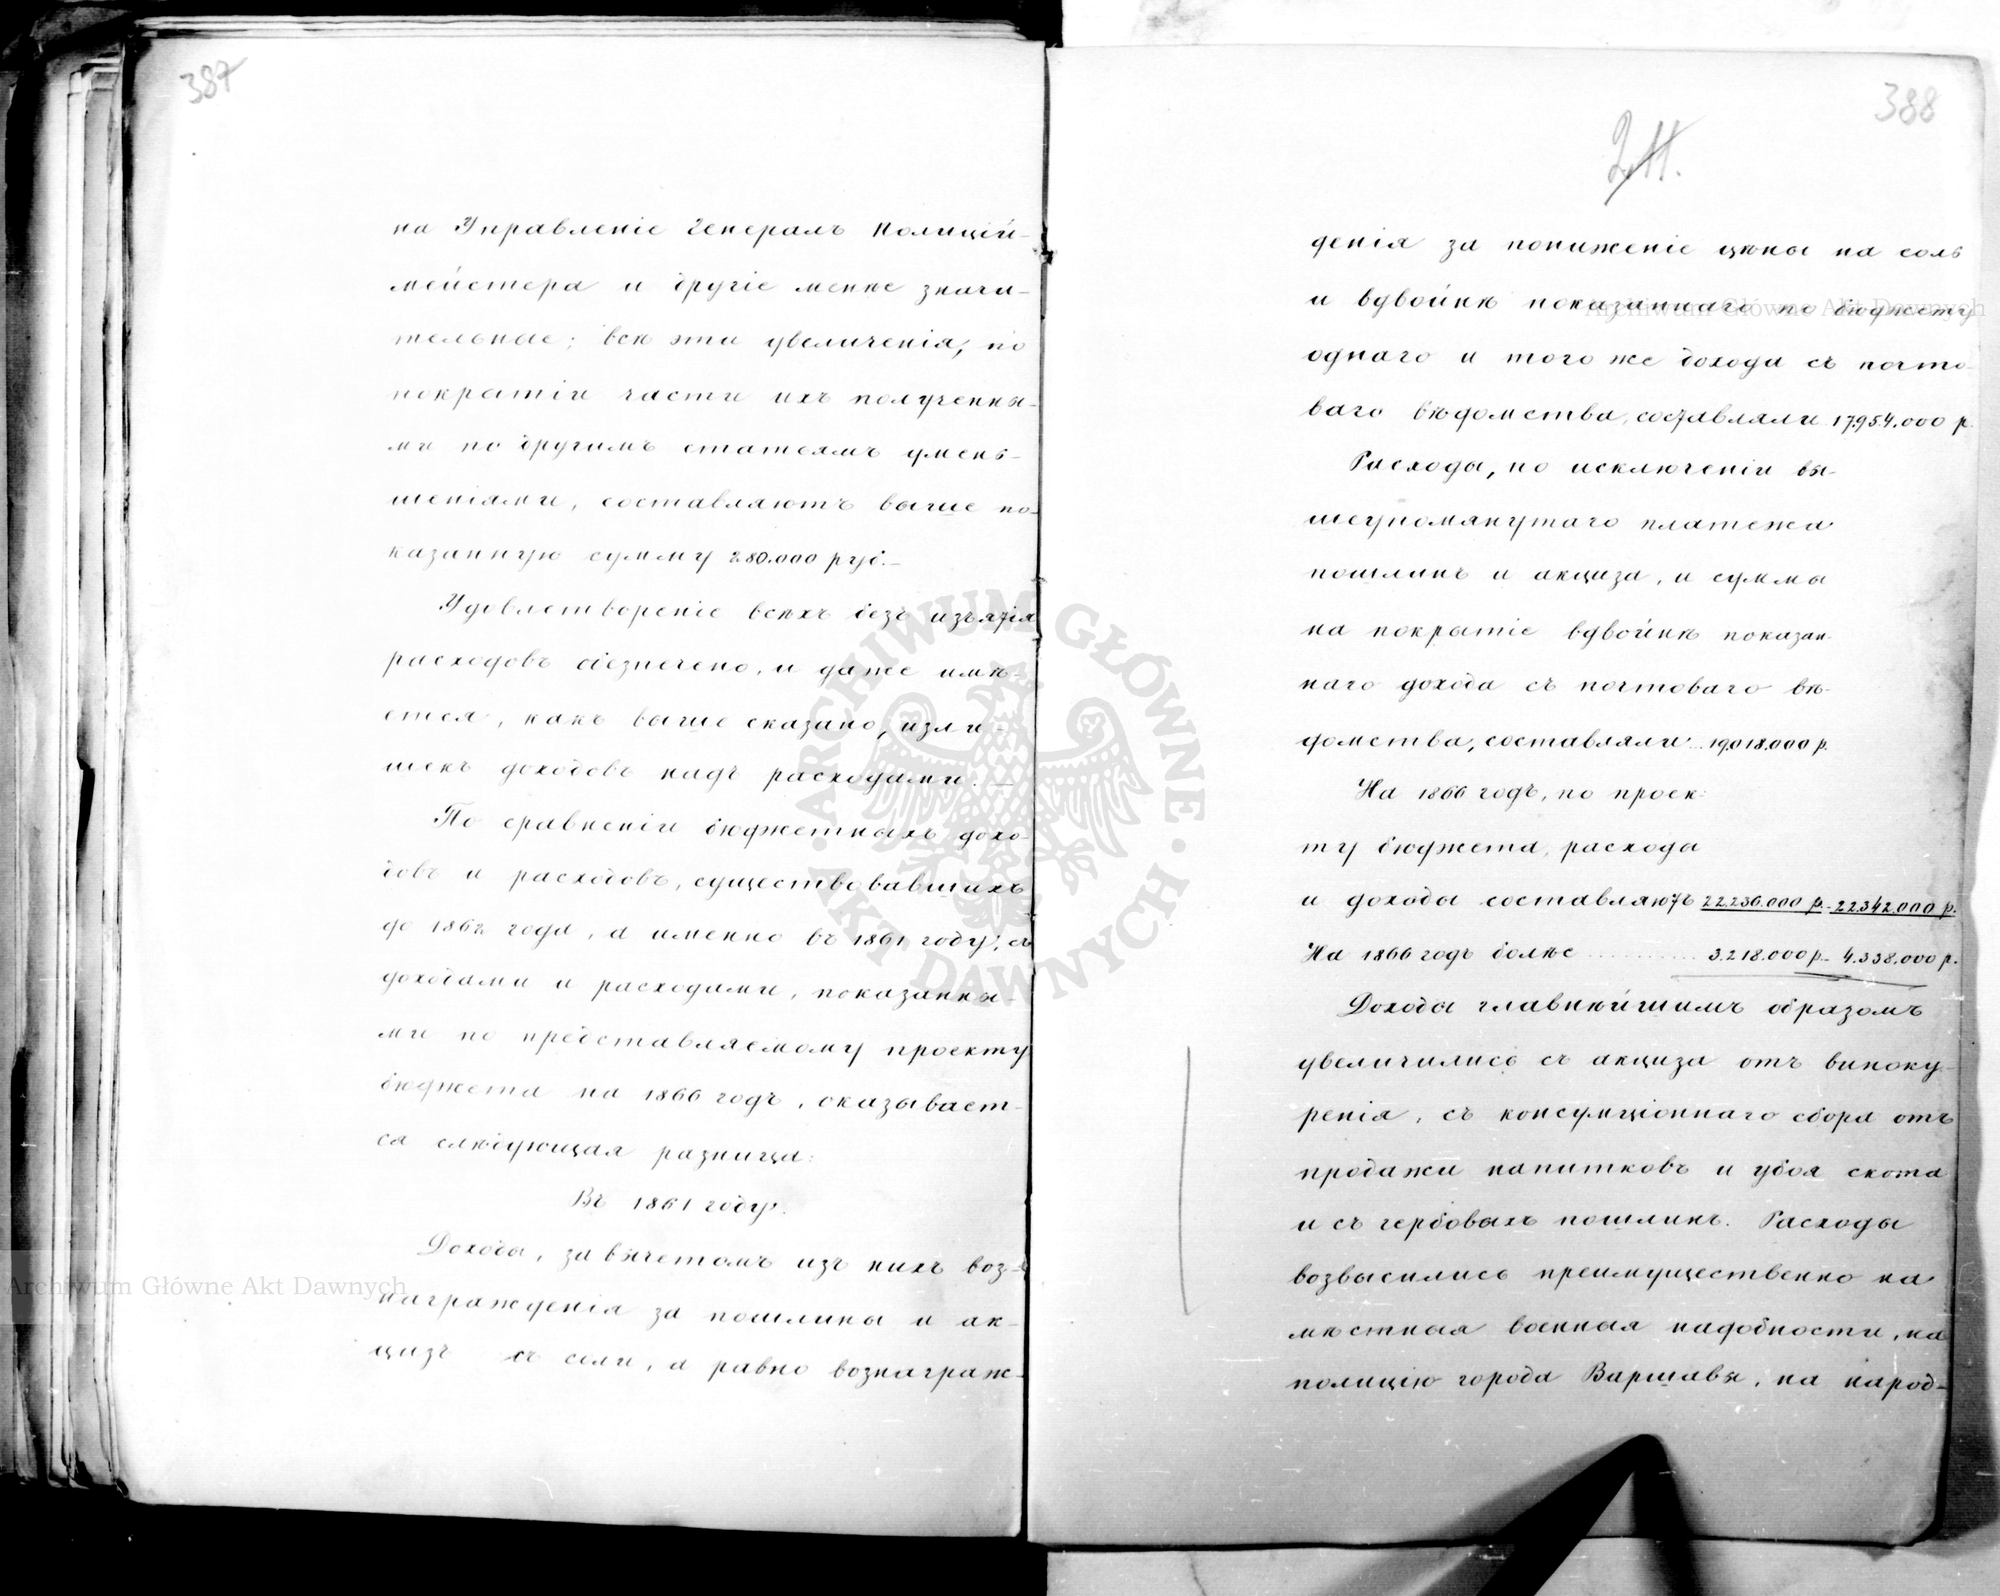 387
на Управленіе Генералъ Полицій-
мейстера и другіе менѣе значи-
тельные; всѣ эти увеличенія, по
покрытіи части ихъ полученны-
ми по другимъ статьямъ умень-
шеніями, составляютъ выше по-
казанную сумму 280.000 руб.—
Удовлетвореніе всѣхъ безъ изъятія
расходовъ обезпечено, и даже имѣ-
ется, какъ выше сказано, изли-
шекъ доходовъ надъ расходами. —
По сравненіи бюджетныхъ дохо-
довъ и расходовъ, существовавшихъ
до 1862 года, а именно въ 1861 году, съ
доходами и расходами, показанны-
ми по представляемому проекту
бюджета на 1866 годъ, оказывает-
ся слѣдующая разница:
Въ 1861 году.
Доходы, за вычетомъ изъ нихъ воз-
награжденія за пошлины и ак-
цизъ съ соли, а равно вознаграж-
388
денія за пониженіе цѣны на соль
и вдвойнѣ показаннаго по бюджету
однаго и того же дохода съ почто-
ваго вѣдомства, составляли 17.954.000 р.
Расходы, по исключеніи вы-
шеупомянутаго платежа
пошлинъ и акциза, и суммы
на покрытіе вдвойнѣ показан-
наго дохода съ почтоваго вѣ-
домства, составляли... 19.018.000 р.
На 1866 годъ, по проек-
ту бюджета, расходы
и доходы составляютъ 22.236.000 р. 22.342.000 р.
На 1866 годъ болѣе ........... 3.218.000 р. 4.338.000 р.
Доходы главнѣйшимъ образомъ
увеличились съ акциза отъ виноку-
ренія, съ консумціоннаго сбора отъ
продажи напитковъ и убоя скота
и съ гербовыхъ пошлинъ. Расходы
возвысились преимущественно на
мѣстныя военныя надобности, на
полицію города Варшавы, на народ-
Archiwum Główne Akt Dawnych
Archiwum Główne Akt Dawnych
ARCHIWUM GŁÓWNE · AKT DAWNYCH ·